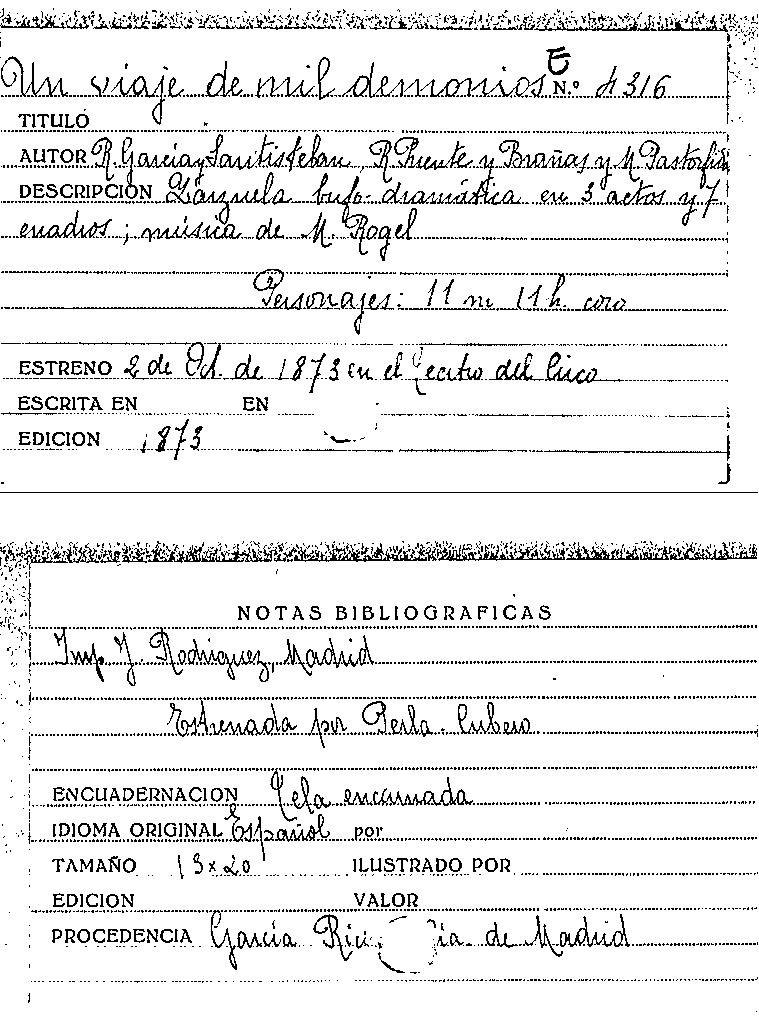 E
Un viaje de mil demonios N.º 4316
TITULO
AUTOR R. García y Santisteban, R. Puente y Brañas y M. Pastorfido
DESCRIPCION Zarzuela bufo-dramática en 3 actos y 7
cuadros; música de M. Rogel
Personajes: 11 m 11 h. coro
ESTRENO 2 de Oct. de 1873 en el Teatro del Circo
ESCRITA EN EN
EDICION 1873
NOTAS BIBLIOGRAFICAS
Imp. J. Rodriguez, Madrid
Estrenada por Perla-Cubero
ENCUADERNACION Tela encarnada
IDIOMA ORIGINAL Español por
TAMAÑO 13x20 ILUSTRADO POR
EDICION VALOR
PROCEDENCIA García Rico de Madrid